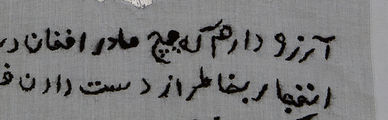 آرزو دارم که هیچ مادر افغان در
انفجار بخاطر از دست دادن